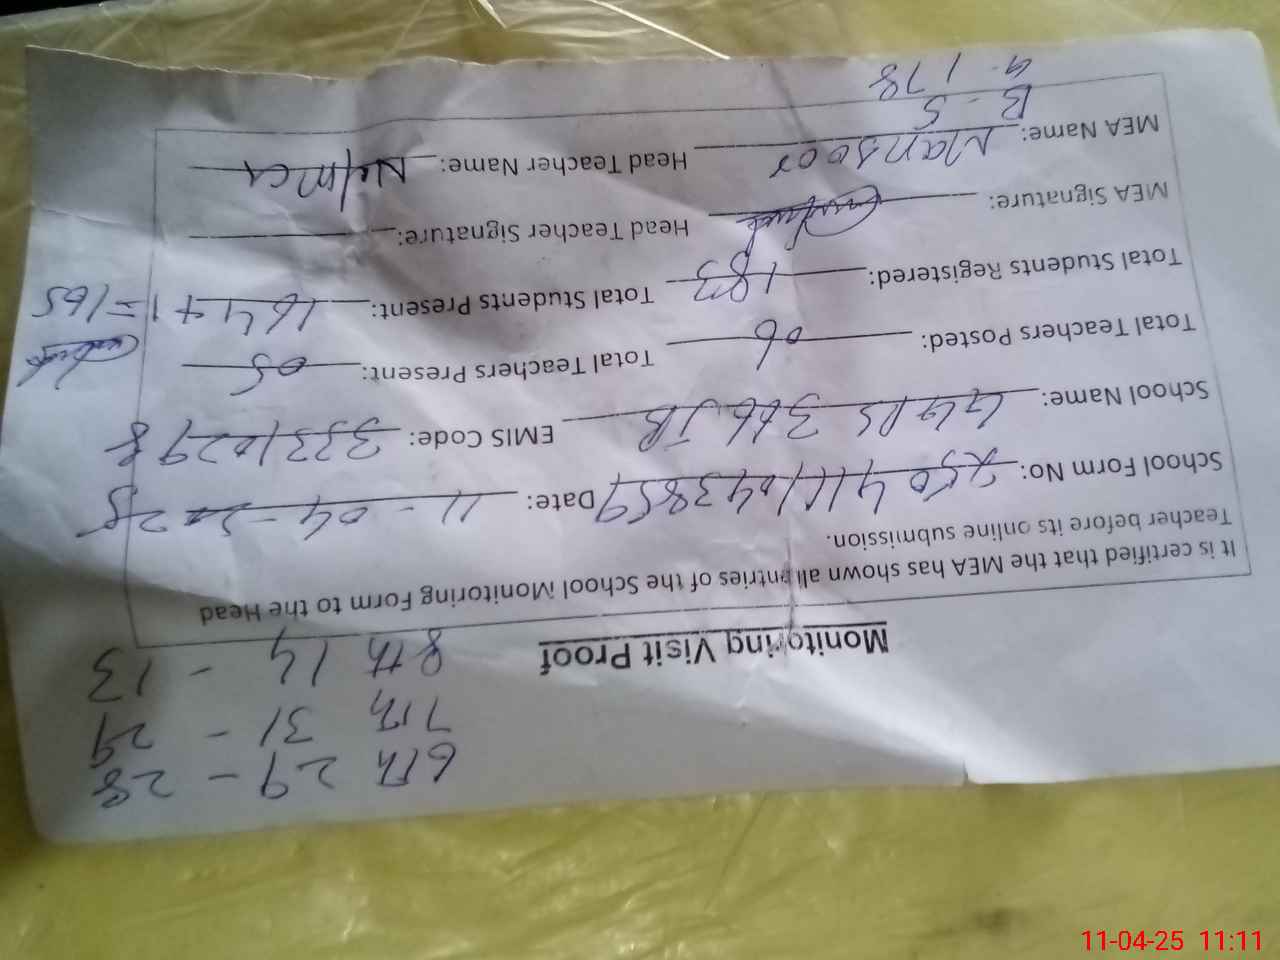 6th 29 - 28
7th 31 - 29
8th 14 - 13
Monitoring Visit Proof
It is certified that the MEA has shown all entries of the School Monitoring Form to the Head
Teacher before its online submission.
School Form No: Date: 11-04-2025
School Name: GGES 366 JB EMIS Code: 33310298
Total Teachers Posted: 06 Total Teachers Present: 05
Total Students Registered: 183 Total Students Present: 164+1=165
MEA Signature: Head Teacher Signature:
MEA Name: Mansoor Head Teacher Name:
B - 5
G - 178
11-04-25 11:11